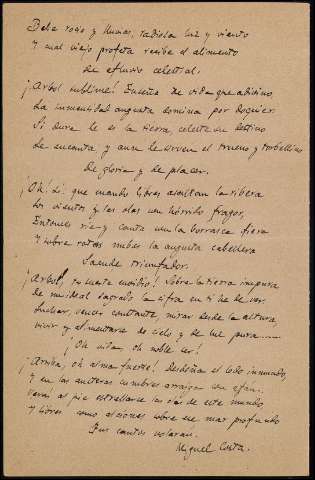 Bebe rocío y llumas, radiola luz y viento
Y cual viejo profeta recibe el alimento
de efluvio celestial.
¡Arbol sublime! Enseña de vida que adivino
La inmensidad augusta domina por doquier
Si dura le es la tierra, celeste su destino
Le encanta y aun le sirven el trueno y torbellino
De gloria y de placer.
¡Oh! Sí: que cuando libres asaltan la ribera
Los vientos y las olas con hórrido fragor,
Entonces rie y canta con la borrasca fiera
Y sobre rotas nubes la augusta cabellera
Sacude triumfador.
¡Arbol, tu suerte envidio! Sobre la tierra impura
De un ideal sagrado la cifra en ti he de ver
Luchar, vencer constante, mirar desde la altura,
vivir y alimentarse de cielo y de luz pura......
¡Oh vida, oh noble ser!
¡Arriba, oh alma fuerte! Desdeña el lodo inmundo,
Y en las austeras cumbres arraiga con afan.
Verás al pie estrellarse las olas de este mundo,
Y libres como alciones sobre ese mar profundo
Tus cantos volaran.
Miguel Costa.